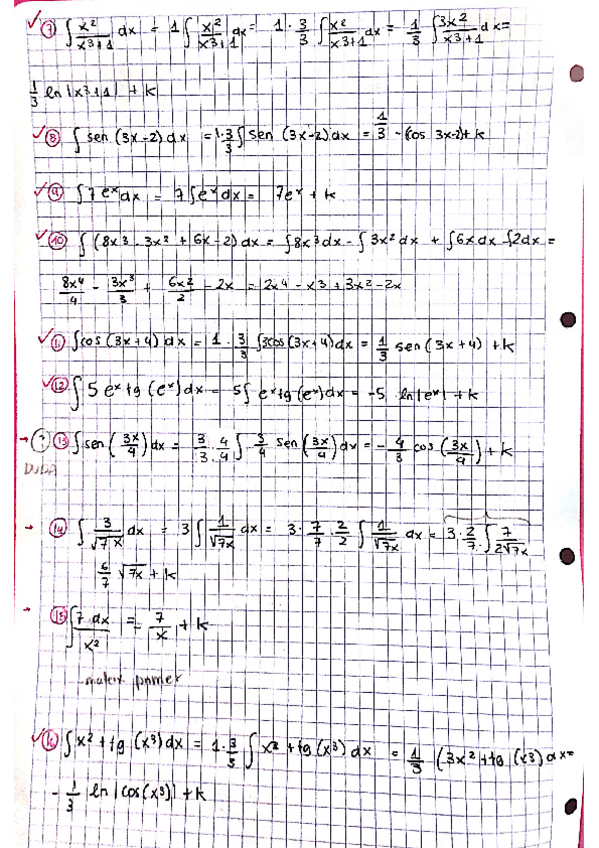 ✓⑦ ∫ x²/(x3+1) dx = 1∫ x²/(x3+1) dx = 1 · 3/3 ∫ x²/(x3+1) dx = 1/3 ∫ 3x²/(x3+1) dx =
1/3 ln |x3+1| + k
✓⑧ ∫ sen (3x-2) dx = 1·3/3 ∫ sen (3x-2) dx = 1/3 - (cos 3x-2) + k
✓⑨ ∫ 7 eˣ dx = 7 ∫ eˣ dx = 7eˣ + k
✓⑩ ∫ (8x3 - 3x² + 6x - 2) dx = ∫8x3 dx - ∫ 3x² dx + ∫6x dx - ∫2dx =
8x⁴/4 - 3x³/3 + 6x²/2 - 2x = 2x4 - x3 + 3x² - 2x
✓⑪ ∫cos (3x+4) dx = 1 · 3/3 ∫3cos (3x+4) dx = 1/3 sen (3x + 4) + k
✓⑫ ∫ 5 eˣ tg (eˣ) dx = 5∫ eˣ tg (eˣ) dx = -5 ln |eˣ| + k
→ (?) ⑬ ∫ sen (3x/4) dx = 3/3 · 4/4 ∫ 3/4 sen (3x/4) dx = - 4/3 cos (3x/4) + k
Duda
→ ⑭ ∫ 3/√7x dx = 3 ∫ 1/√7x dx = 3 · 7/7 · 2/2 ∫ 1/√7x dx = 3 · 2/7 · ∫ 7/2√7x
6/7 √7x + k
→ ⑮ ∫ 7 dx/x² = 7/x + k
✓⑯ ∫ x² + tg (x³) dx = 1 · 3/3 ∫ x² + tg (x³) dx = 1/3 ∫ 3x² + tg (x3) dx =
- 1/3 ln |cos(x³)| + k